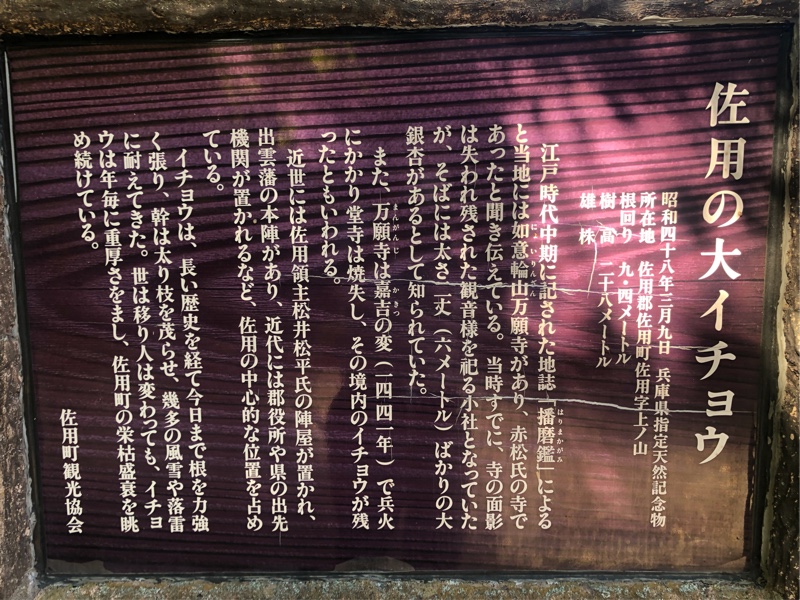 佐用の大イチョウ
昭和四十八年三月九日　兵庫県指定天然記念物
所在地　佐用郡佐用町佐用字上ノ山
根回り　九・四メートル
樹　高　二十八メートル
雄　株
江戸時代中期に記された地誌「播磨鑑」による
と当地には如意輪山万願寺があり、赤松氏の寺で
あったと聞き伝えている。当時すでに、寺の面影
は失われ残された観音様を祀る小社となっていた
が、そばには太さ二丈（六メートル）ばかりの大
銀杏があるとして知られていた。
また、万願寺は嘉吉の変（一四四一年）で兵火
にかかり堂寺は焼失し、その境内のイチョウが残
ったともいわれる。
近世には佐用領主松井松平氏の陣屋が置かれ、
出雲藩の本陣があり、近代には郡役所や県の出先
機関が置かれるなど、佐用の中心的な位置を占め
ている。
イチョウは、長い歴史を経て今日まで根を力強
く張り、幹は太り枝を茂らせ、幾多の風雪や落雷
に耐えてきた。世は移り人は変わっても、イチョ
ウは年毎に重厚さをまし、佐用町の栄枯盛衰を眺
め続けている。
佐用町観光協会